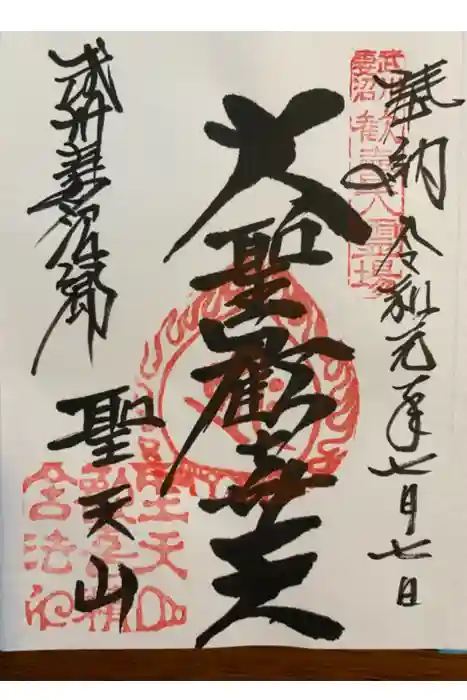 武州妻沼
歓喜天霊場
奉納 令和元年七月七日
大聖歓喜天
武州妻沼郷
聖天山